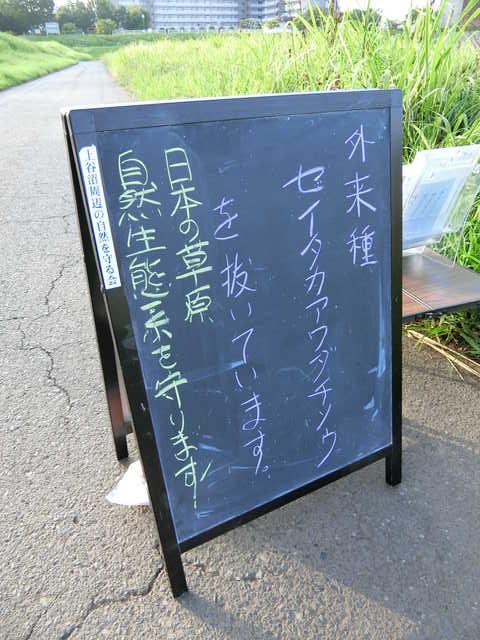 外来種
セイタカアワダチソウ
を抜いています。
日本の草原
自然生態系を守ります!
上谷沼周辺の自然を守る会